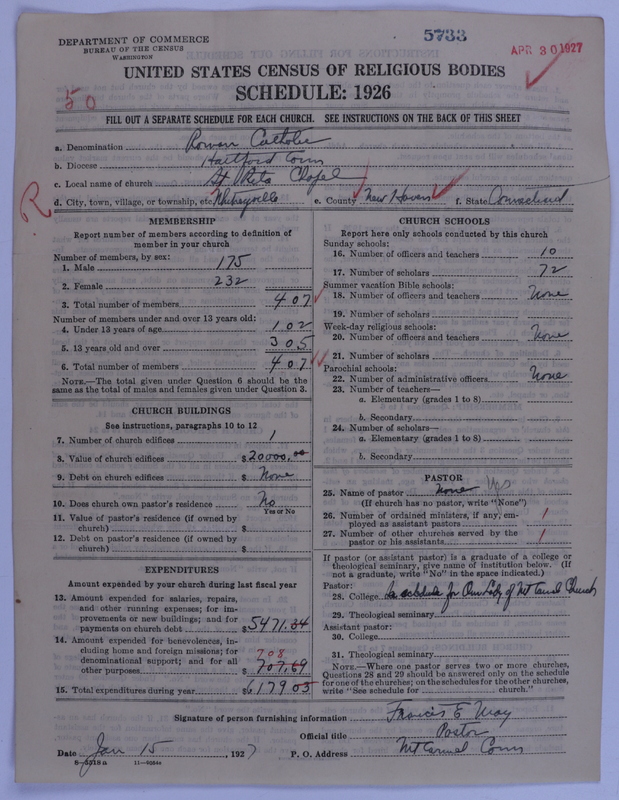 DEPARTMENT OF COMMERCE
BUREAU OF THE CENSUS
WASHINGTON
5733
APR 30 1927
UNITED STATES CENSUS OF RELIGIOUS BODIES
SCHEDULE: 1926
50
FILL OUT A SEPARATE SCHEDULE FOR EACH CHURCH. SEE INSTRUCTIONS ON THE BACK OF THIS SHEET
a. Denomination Roman Catholic
b. Diocese Hartford Conn
c. Local name of church St Rita Chapel
R
d. City, town, village, or township, etc. Whitneyville e. County New Haven f. State Connecticut
MEMBERSHIP
Report number of members according to definition of member in your church
Number of members, by sex:
1. Male 175
2. Female 232
3. Total number of members 407
Number of members under and over 13 years old:
4. Under 13 years of age 102
5. 13 years old and over 305
6. Total number of members 407
NOTE.—The total given under Question 6 should be the
same as the total of males and females given under Question 3.
CHURCH BUILDINGS
See instructions, paragraphs 10 to 12
7. Number of church edifices 1
8. Value of church edifices $20000.00
9. Debt on church edifices $ None
10. Does church own pastor's residence No
Yes or No
11. Value of pastor's residence (if owned by
church) $
12. Debt on pastor's residence (if owned by
church) $
EXPENDITURES
Amount expended by your church during last fiscal year
13. Amount expended for salaries, repairs,
and other running expenses; for im-
provements or new buildings; and for
payments on church debt $5471.34
14. Amount expended for benevolences, in-
cluding home and foreign missions; for
denominational support; and for all 708
other purposes $707.69
15. Total expenditures during year $6179 03
CHURCH SCHOOLS
Report here only schools conducted by this church
Sunday schools:
16. Number of officers and teachers 10
17. Number of scholars 72
Summer vacation Bible schools:
18. Number of officers and teachers None
19. Number of scholars
Week-day religious schools:
20. Number of officers and teachers None
21. Number of scholars
Parochial schools:
22. Number of administrative officers None
23. Number of teachers—
a. Elementary (grades 1 to 8)
b. Secondary
24. Number of scholars—
a. Elementary (grades 1 to 8)
b. Secondary
PASTOR
25. Name of pastor None Yes
(If church has no pastor, write "None")
26. Number of ordained ministers, if any, em-
ployed as assistant pastors 1
27. Number of other churches served by the
pastor or his assistants 1
If pastor (or assistant pastor) is a graduate of a college or
theological seminary, give name of institution below. (If
not a graduate, write "No" in the space indicated.)
Pastor:
28. College schedule for Our Lady of Mt Carmel Church
29. Theological seminary
Assistant pastor:
30. College
31. Theological seminary
NOTE.—Where one pastor serves two or more churches,
Questions 28 and 29 should be answered only on the schedule
for one of the churches; on the schedules for the other churches,
write "See schedule for church."
Signature of person furnishing information Francis E May
Official title Pastor
Date Jan 15, 1927 P. O. Address Mt Carmel Conn
8—5318a 11—